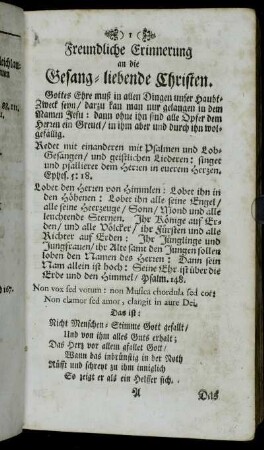 1
Freundliche Erinnerung
an die
Gesang-liebende Christen.
Gottes Ehre muß in allen Dingen unser Haubt-
Zweck seyn/ darzu kan man nur gelangen in dem
Namen Jesu: dann ohne ihn sind alle Opfer dem
Herren ein Greuel/ in ihm aber und durch ihn wol-
gefällig.
Redet mit einanderen mit Psalmen und Lob-
Gesangen/ und geistlichen Liederen: singet
und psallieret dem Herren in euerem Herzen.
Ephes. 5: 18.
Lobet den Herren von Himmlen: Lobet ihn in
den Höhenen: Lobet ihn alle seine Engel/
alle seine Heerzeuge/ Sonn/ Mond und alle
leuchtende Sternen. Ihr Könige auf Er-
den/ und alle Völcker/ ihr Fürsten und alle
Richter auf Erden: Ihr Jünglinge und
Jungfrauen/ ihr Alte samt den Jungen sollen
loben den Namen des Herren: Dann sein
Nam allein ist hoch: Seine Ehr ist über die
Erde und den Himmel/ Psalm. 148.
Non vox sed votum: non Musica chordula sed cor:
Non clamor sed amor, clangit in aure Dei.
Das ist:
Nicht Menschen-Stimme Gott gefallt/
Und von ihm alles Guts erhalt;
Das Herz vor allem gfallet Gott/
Wann das inbrünstig in der Noth
Rüfft und schreyt zu ihm inniglich
So zeigt er als ein Helffer sich.
A Das
167.